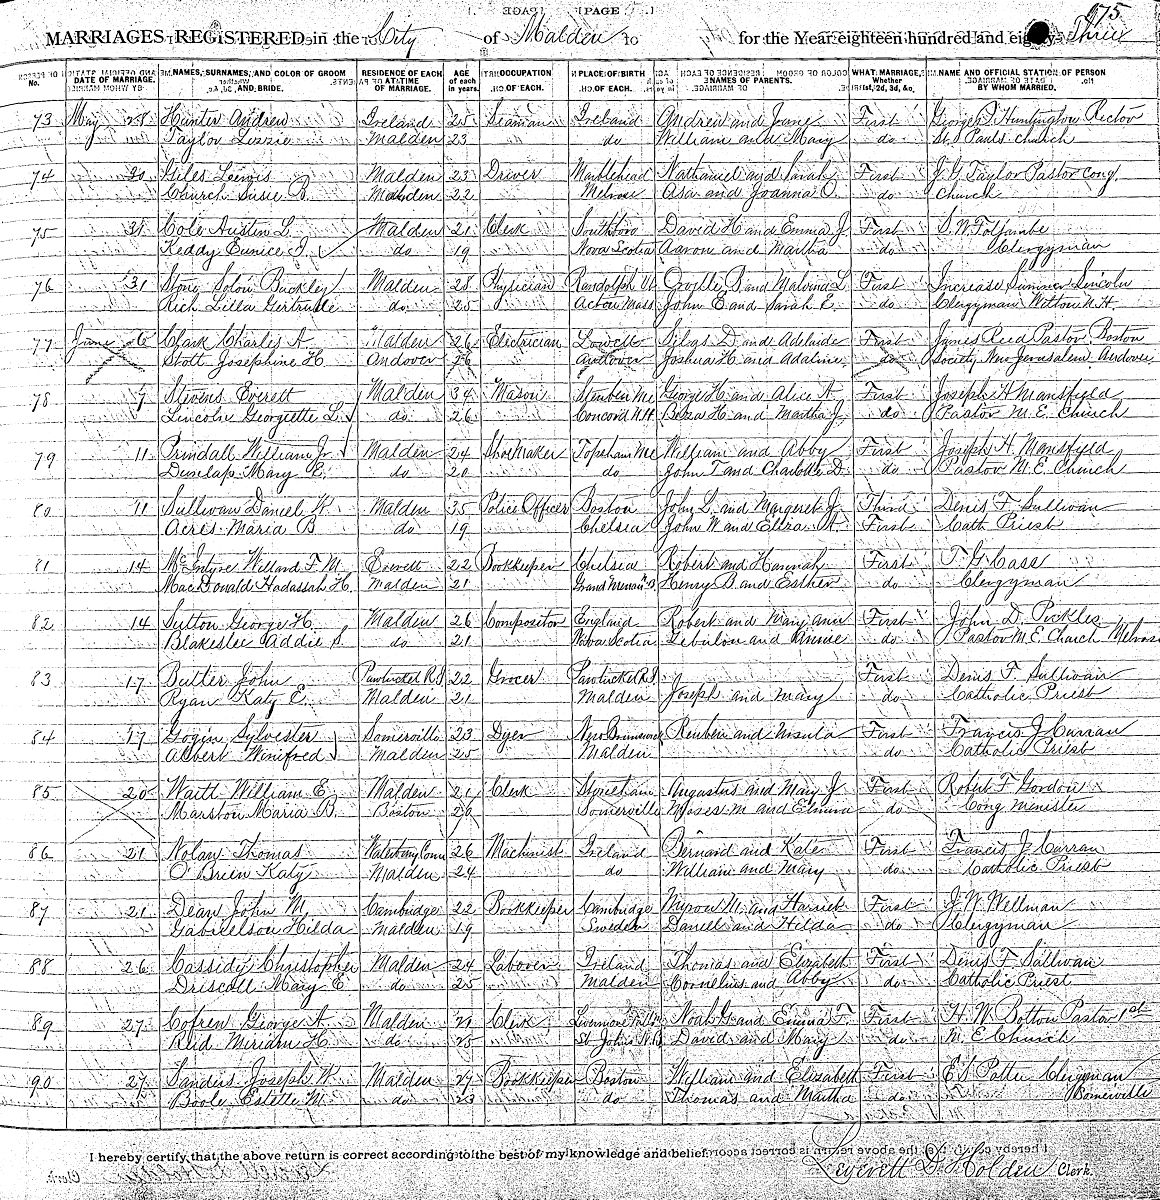 PAGE
475
MARRIAGES REGISTERED in the City of Malden for the Year eighteen hundred and eighty-Three
No. DATE OF MARRIAGE. NAMES, SURNAMES, AND COLOR OF GROOM AND BRIDE. RESIDENCE OF EACH AT TIME OF MARRIAGE. AGE of each in years. OCCUPATION OF EACH. PLACE OF BIRTH OF EACH. NAMES OF PARENTS. WHAT MARRIAGE, Whether 1st, 2d, 3d, &c. NAME AND OFFICIAL STATION OF PERSON BY WHOM MARRIED.
73 May 28 Hunter Andrew Ireland 25 Seaman Ireland Andrew and Jane First George P. Huntington Rector
Taylor Lizzie Malden 23 do William and Mary do St. Pauls church
74 30 Giles Lewis Malden 23 Driver Marblehead Nathaniel and Sarah First J. G. Taylor Pastor Cong.
Church Susie B. Malden 22 Melrose Asa and Joanna O. do Church
75 31 Cole Austin L. Malden 21 Clerk Southboro David H and Emma J. First S. W. Foljambe
Keddy Eunice J. do 19 Nova Scotia Aaron and Martha do Clergyman
76 31 Stone Solon Buckley Malden 28 Physician Randolph Vt Orville B. and Malvina L. First Increase Sumner Lincoln
Rich Lilla Gertrude do 25 Acton Mass John E and Sarah E. do Clergyman Wilton N.H.
77 June 6 Clark Charles A Malden 26 Electrician Lowell Silas D and Adelaide First James Reed Pastor Boston
Stott Josephine H Andover 26 Andover Joshua H and Adaline do Society New Jerusalem Andover
78 7 Stevens Everett Malden 34 Mason Steuben Me George H. and Alice A. First Joseph H Mansfield
Lincoln Georgiette L. do 26 Concord N.H. and Martha J. do Pastor M. E. Church
79 11 Prindall William Jr. Malden 24 Shoe Maker Topsham Me William and Abby First Joseph H. Mansfield
Dunlap Mary E. do 20 do John T and Charlotte D do Pastor M. E. Church
80 11 Sullivan Daniel K. Malden 35 Police Officer Boston John L. and Margaret J. Third Denis F. Sullivan
Acres Maria B do 19 Chelsea John W and Eliza A. First Cath Priest
81 14 McIntyre Willard F. M. Everett 22 Bookkeeper Chelsea Robert and Hannah First T. G. Cass
MacDonald Hadassah H. Malden 21 Grand Menan N.B Henry B. and Esther do Clergyman
82 14 Sutton George H. Malden 26 Compositor England Robert and Mary Ann First John D. Pickles
Blakeslee Addie S. do 21 Nova Scotia Zebulon and Annie do Pastor M. E. Church Melrose
83 17 Butler John Pawtucket R.I 22 Grocer Pawtucket R.I. First Denis F. Sullivan
Ryan Katy E. Malden 21 Malden Joseph and Mary do Catholic Priest
84 17 Gogin Sylvester Somerville 23 Dyer New Brunswick Reuben and Ursula First Francis J. Curran
Albert Winifred Malden 25 Malden do Catholic Priest
85 20 Waitt William E. Malden 21 Clerk Stoneham Augustus and Mary J First Robert F. Gordon
Marston Maria B. Boston 20 Somerville Moses M and Elmira do Cong. Minister
86 21 Nolan Thomas Waterbury Conn 26 Machinist Ireland Bernard and Kate First Francis J. Curran
O'Brien Katy Malden 24 do William and Mary do Catholic Priest
87 21 Dean John M Cambridge 22 Bookkeeper Cambridge Myron M. and Harriet First J. W. Wellman
Gabrielson Hilda Malden 19 Sweden Daniel and Hilda do Clergyman
88 26 Cassidy Christopher Malden 24 Laborer Ireland Thomas and Elizabeth First Denis F. Sullivan
Driscoll Mary E do 25 Malden Cornelius and Abby do Catholic Priest
89 27 Cofren George A Malden 21 Clerk Livermore Falls Me Noah G. and Emma F. First H. W. Bolton Pastor 1st
Reid Miriam H. do 25 St. Johns N.B. David and Mary do M. E. Church
90 27 Sanders Joseph W Malden 27 Bookkeeper Boston William and Elizabeth First E. S. Potter Clergyman
Boole Estelle M. do 23 do Thomas and Martha do Somerville
I hereby certify that the above return is correct according to the best of my knowledge and belief.
Leverett D. Holden Clerk.